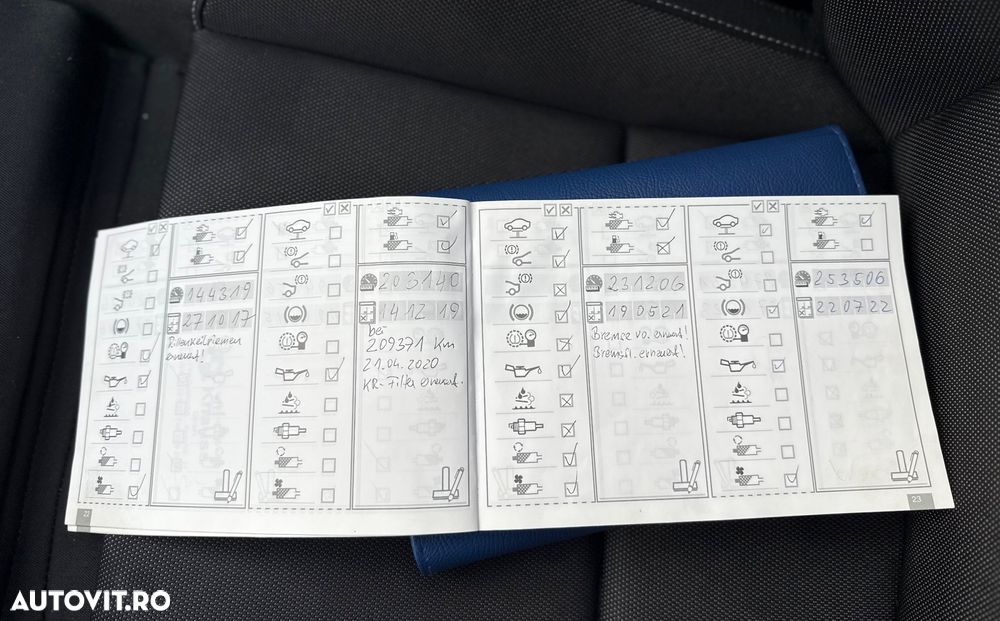 144319
27 10 17
Rillenkeilriemen
erneuert!
203140
14 12 19
bei
209371 Km
21.04.2020
KR-Filter erneuert.
22
231206
19 05 21
Bremse vo. erneuert!
Bremsfl. erneuert!
253506
22 07 22
23
AUTOVIT.RO